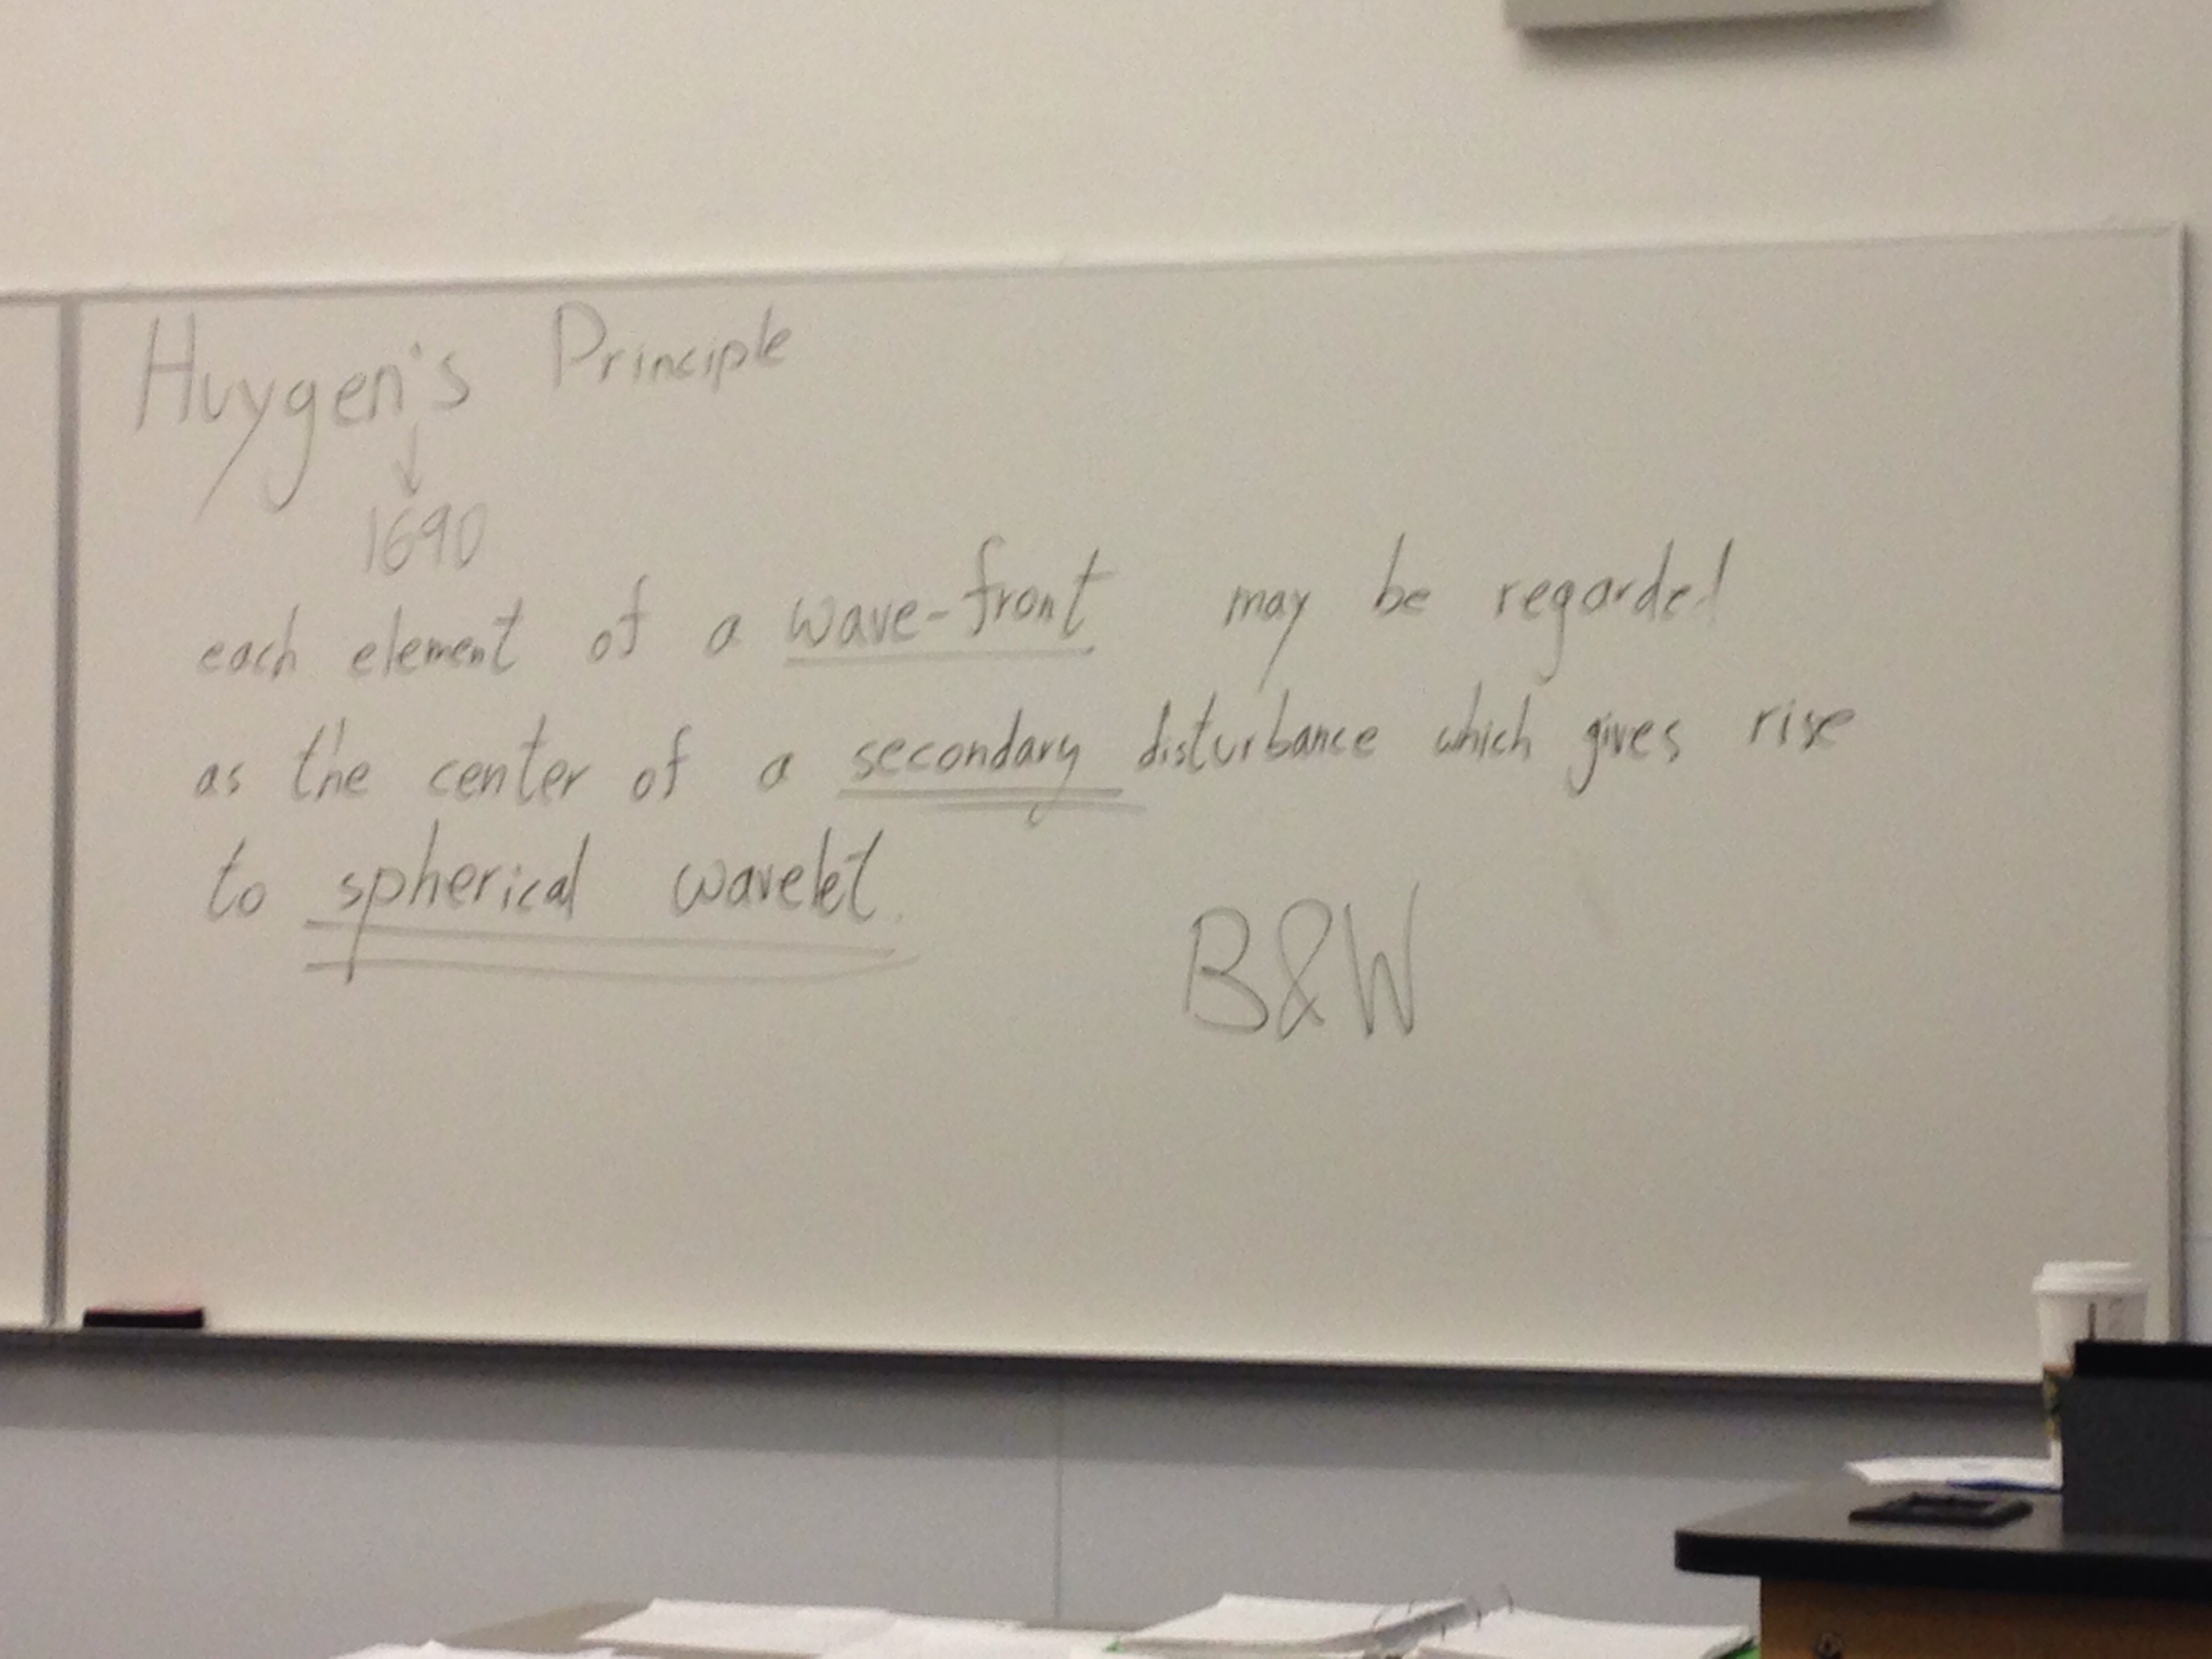 Huygen's Principle
↓
1690
each element of a wave-front may be regarded
as the center of a secondary disturbance which gives rise
to spherical wavelet.
B&W